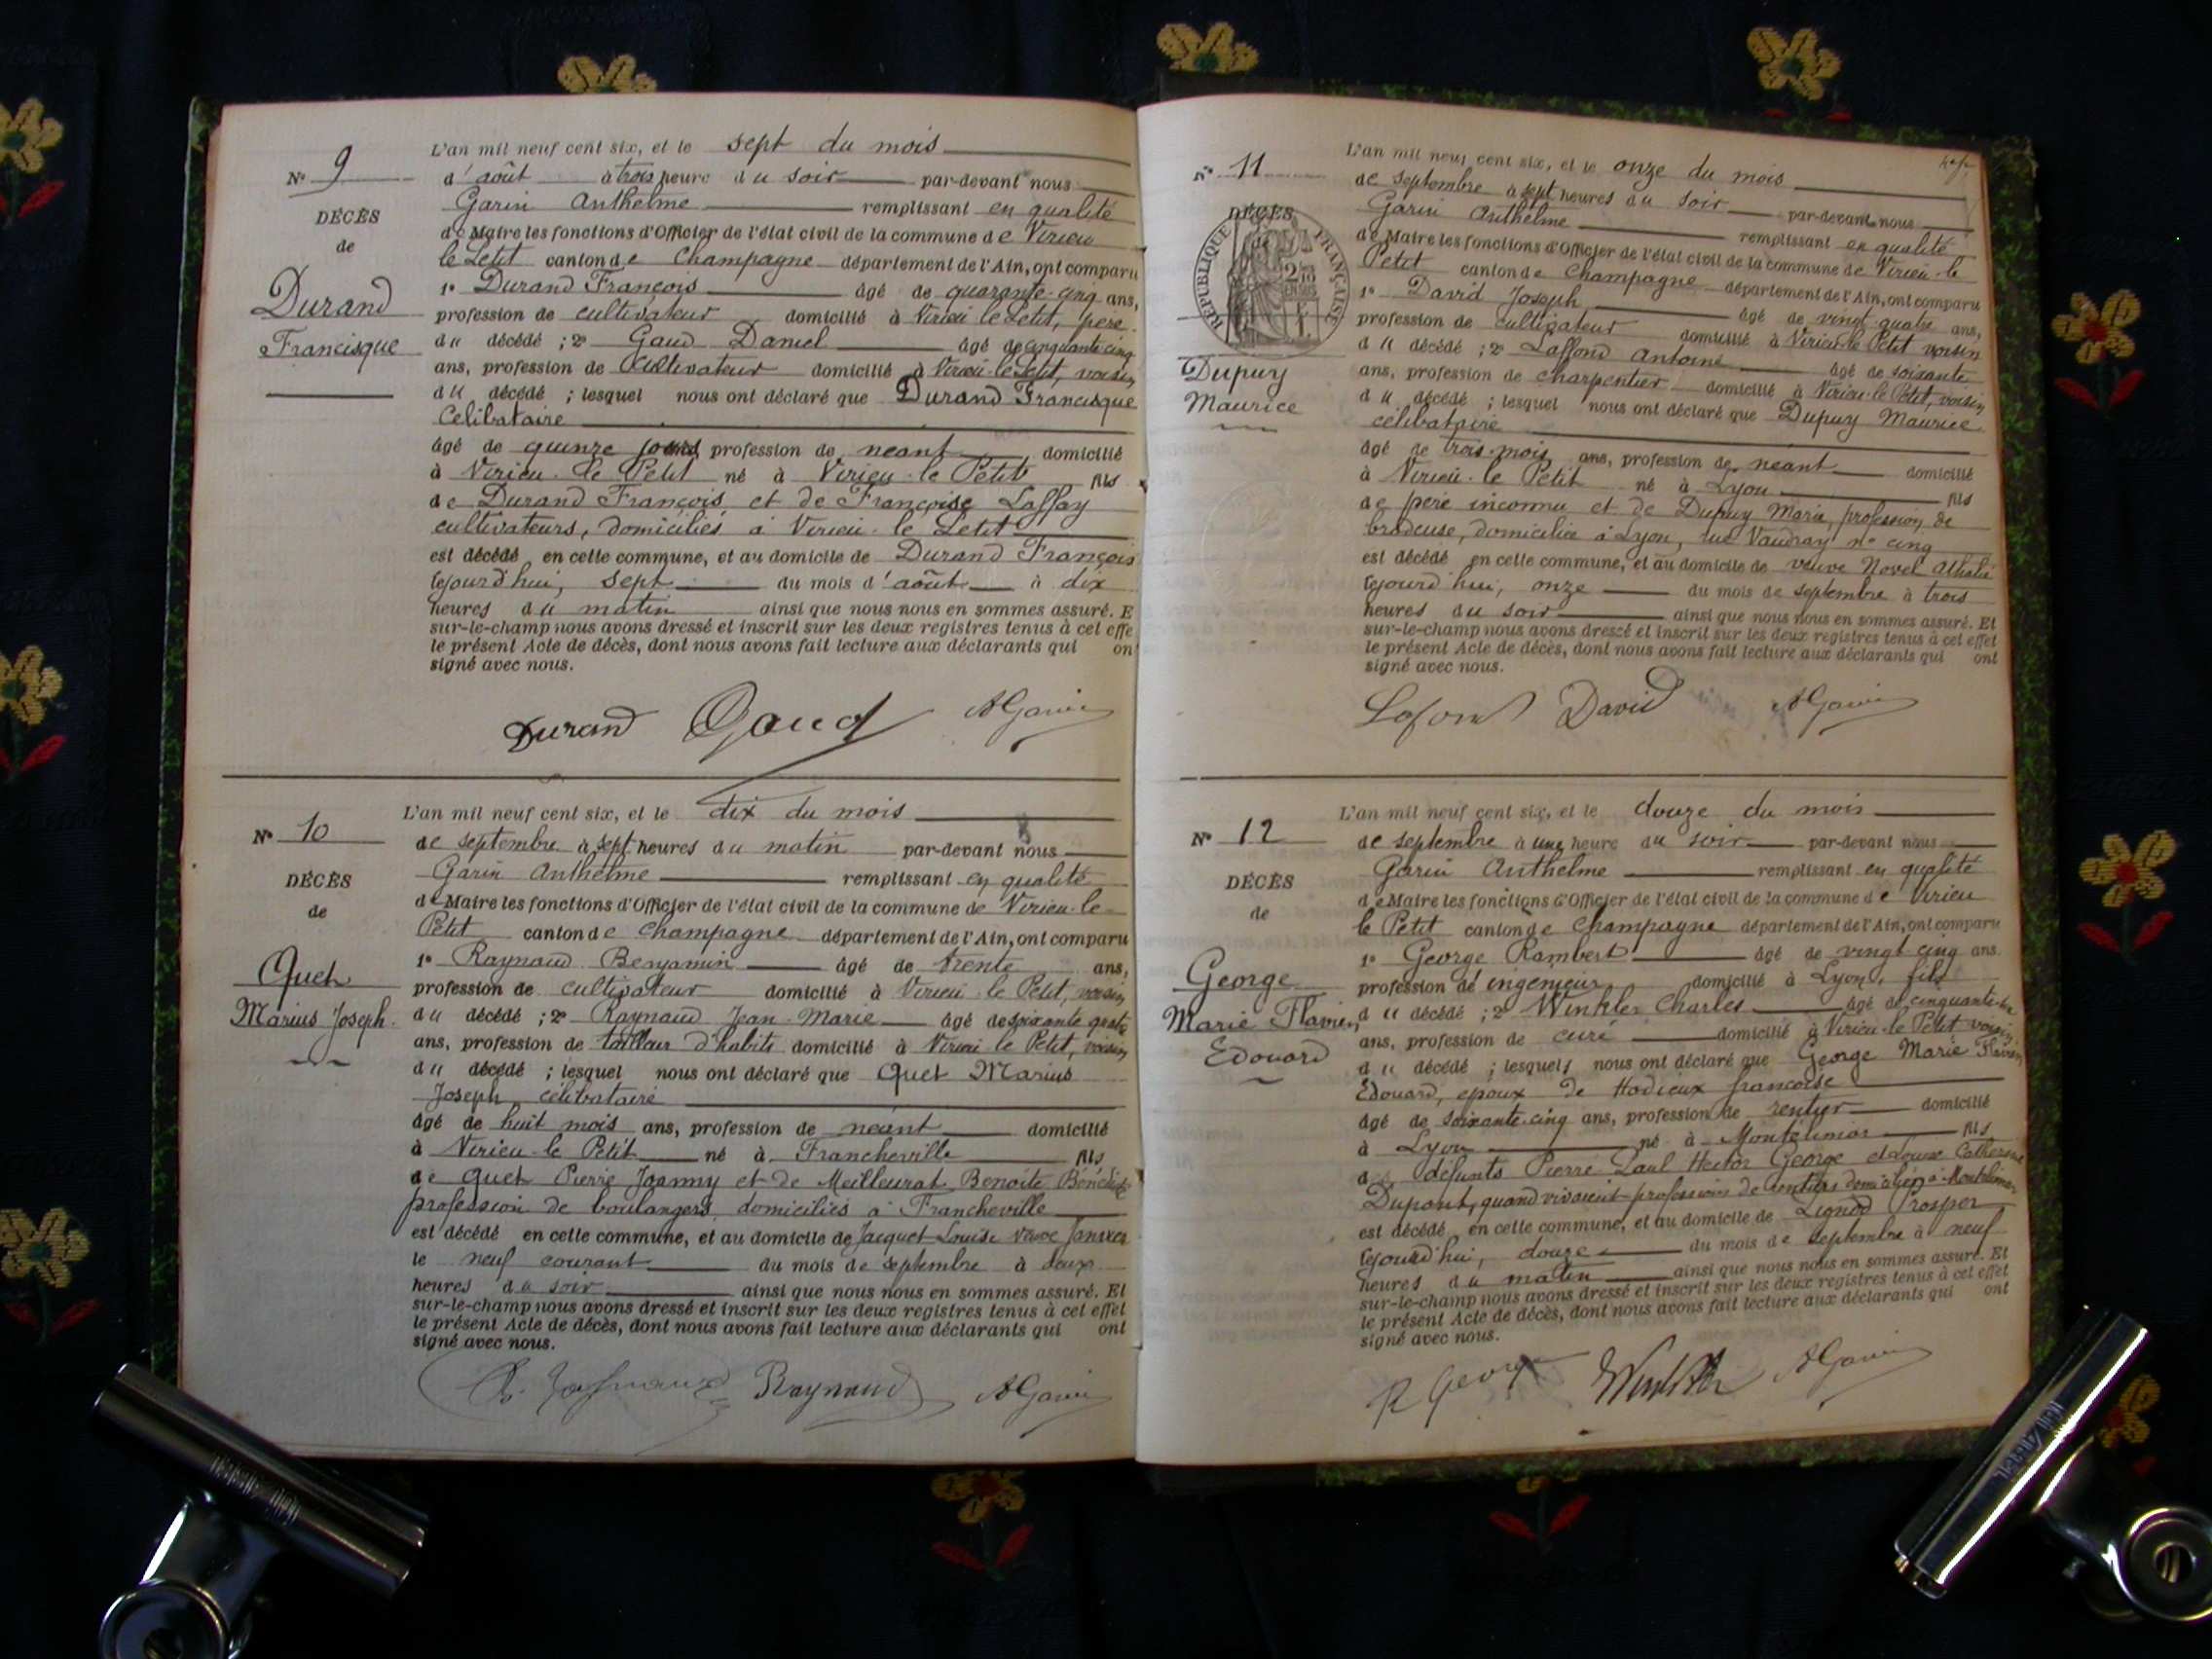 N° 9
DÉCÈS
de
Durand
Francisque
L'an mil neuf cent six, et le sept du mois
d'août à trois heure du soir par-devant nous
Garin Anthelme remplissant en qualité
de Maire les fonctions d'Officier de l'état civil de la commune de Virieu
le Petit canton de Champagne département de l'Ain, ont comparu
1° Durand François âgé de quarante-cinq ans,
profession de cultivateur domicilié à Virieu le Petit, père
du décédé ; 2° Gaud Daniel âgé de cinquante cinq
ans, profession de cultivateur domicilié à Virieu-le-Petit, voisin
du décédé ; lesquel nous ont déclaré que Durand Francisque
Celibataire
âgé de quinze jours, profession de néant domicilié
à Virieu-le Petit né à Virieu-le Petit fils
de Durand François et de Françoise Laffay
cultivateurs, domiciliés à Virieu-le Petit
est décédé en cette commune, et au domicile de Durand François
cejourd'hui, sept du mois d'août à dix
heures du matin ainsi que nous nous en sommes assuré. E
sur-le-champ nous avons dressé et inscrit sur les deux registres tenus à cet effe
le présent Acte de décès, dont nous avons fait lecture aux déclarants qui on
signé avec nous.
Durand Gaud AGarin
N° 10
DÉCÈS
de
Quet
Marius Joseph
L'an mil neuf cent six, et le dix du mois
de septembre à sept heures du matin par-devant nous
Garin Anthelme remplissant en qualité
de Maire les fonctions d'Officier de l'état civil de la commune de Virieu-le-
Petit canton de Champagne département de l'Ain, ont comparu
1° Raynaud Benjamin âgé de trente ans,
profession de cultivateur domicilié à Virieu le Petit, voisin
du décédé ; 2° Raynaud Jean-Marie âgé de soixante quatre
ans, profession de tailleur d'habits domicilié à Virieu le Petit, voisin
du décédé ; lesquel nous ont déclaré que Quet Marius
Joseph, célibataire
âgé de huit mois ans, profession de néant domicilié
à Virieu-le Petit né à Francheville fils
de Quet Pierre Joanny et de Meilleurat Benoite Bénédicte
profession de boulangers domiciliés à Francheville
est décédé en cette commune, et au domicile de Jacquet Louise veuve
le neuf courant du mois de septembre à deux
heures du soir ainsi que nous nous en sommes assuré. Et
sur-le-champ nous avons dressé et inscrit sur les deux registres tenus à cet effet
le présent Acte de décès, dont nous avons fait lecture aux déclarants qui ont
signé avec nous.
Raynaud AGarin
N° 11
DÉCÈS
RÉPUBLIQUE FRANÇAISE
Dupuy
Maurice
L'an mil neuf cent six, et le onze du mois
de septembre à sept heures du soir par-devant nous
Garin Anthelme remplissant en qualité
de Maire les fonctions d'Officier de l'état civil de la commune de Virieu-le
Petit canton de Champagne département de l'Ain, ont comparu
1° David Joseph âgé de vingt-quatre ans,
profession de cultivateur domicilié à Virieu le Petit voisin
du décédé ; 2° Laffond Antoine âgé de soixante
ans, profession de charpentier domicilié à Virieu-le Petit, voisin
du décédé ; lesquel nous ont déclaré que Dupuy Maurice
célibataire
âgé de trois mois ans, profession de néant domicilié
à Virieu-le Petit né à Lyon fils
de père inconnu et de Dupuy Marie, profession de
brodeuse, domiciliée à Lyon, rue Vaudray n° cinq
est décédé en cette commune, et au domicile de veuve Novel Athalie
cejourd'hui, onze du mois de septembre à trois
heures du soir ainsi que nous nous en sommes assuré. Et
sur-le-champ nous avons dressé et inscrit sur les deux registres tenus à cet effet
le présent Acte de décès, dont nous avons fait lecture aux déclarants qui ont
signé avec nous.
Lafond David AGarin
N° 12
DÉCÈS
de
George
Marie Flavien
Edouard
L'an mil neuf cent six, et le douze du mois
de septembre à une heure du soir par-devant nous
Garin Anthelme remplissant en qualité
de Maire les fonctions d'Officier de l'état civil de la commune de Virieu
le Petit canton de Champagne département de l'Ain, ont comparu
1° George Rambert âgé de vingt cinq ans
profession de ingenieur domicilié à Lyon, fils
du décédé ; 2° Winkler Charles âgé de cinquante
ans, profession de curé domicilié à Virieu-le Petit voisin
du décédé ; lesquels nous ont déclaré que George Marie Flavien
Edouard, epoux de Hodieux françoise
âgé de soixante-cinq ans, profession de rentier domicilié
à Lyon né à Montélimar fils
de défunts Pierre Paul Hector George et Louise Catherine
Dupont, quand vivaient profession de rentiers domiciliés à Montélimar
est décédé en cette commune, et au domicile de Lignod Prosper
cejourd'hui, douze du mois de septembre à neuf
heures du matin ainsi que nous nous en sommes assuré. Et
sur-le-champ nous avons dressé et inscrit sur les deux registres tenus à cet effet
le présent Acte de décès, dont nous avons fait lecture aux déclarants qui ont
signé avec nous.
R George Winkler AGarin